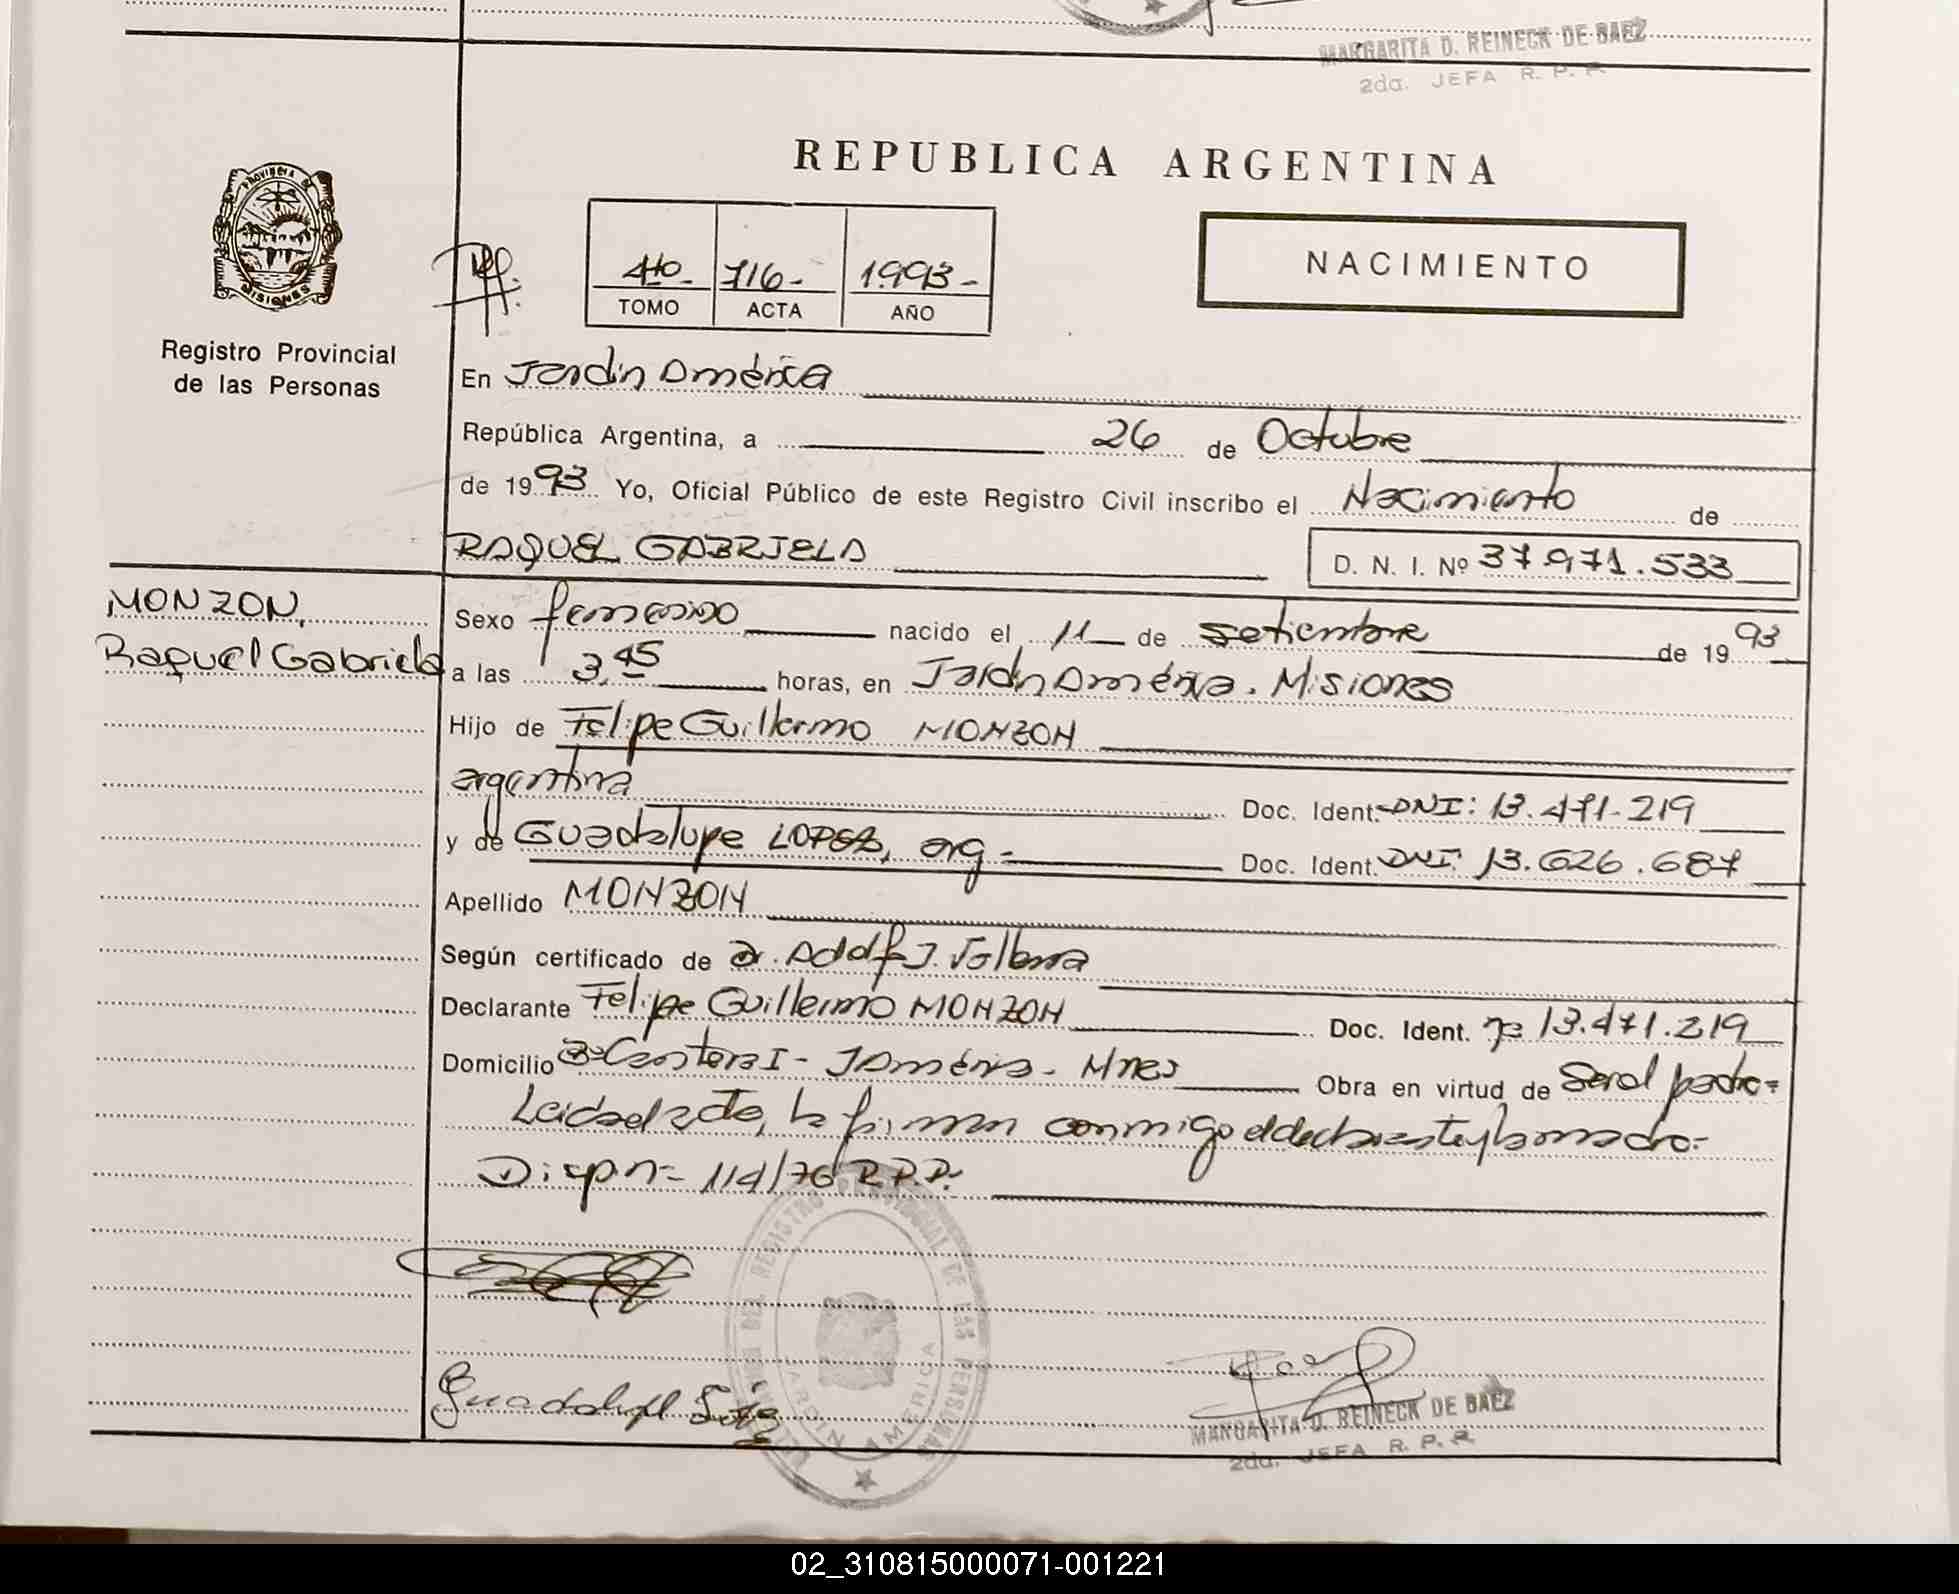 MARGARITA D. REINECK DE BAEZ
2da. JEFA R. P. P.
REPUBLICA ARGENTINA
PROVINCIA DE
MISIONES
Registro Provincial
de las Personas
4to- 716- 1993-
TOMO ACTA AÑO
NACIMIENTO
En Jardín América
República Argentina, a 26 de Octubre
de 1993 Yo, Oficial Público de este Registro Civil inscribo el Nacimiento de
RAQUEL GABRIELA
D. N. I. Nº 37.971.533
MONZON,
Raquel Gabriela
Sexo femenino nacido el 11 de setiembre de 1993
a las 3,45 horas, en Jardín América. Misiones
Hijo de Felipe Guillermo MONZON
argentina Doc. Ident. DNI: 13.471.219
y de Guadalupe LOPEZ, arg- Doc. Ident. DNI: 13.626.687
Apellido MONZON
Según certificado de Dr. Adolfo J.
Declarante Felipe Guillermo MONZON Doc. Ident. 13.471.219
Domicilio I- J América- Mnes Obra en virtud de Ser el padre=
Leida el acta, la firman conmigo el declarante y la madre-
Dispn= 114/76 R.P.P.
DEL REGISTRO PROVINCIAL DE LAS PERSONAS
JARDIN AMERICA
Guadalupe
MARGARITA D. REINECK DE BAEZ
2da. JEFA R. P. P.
02_310815000071-001221